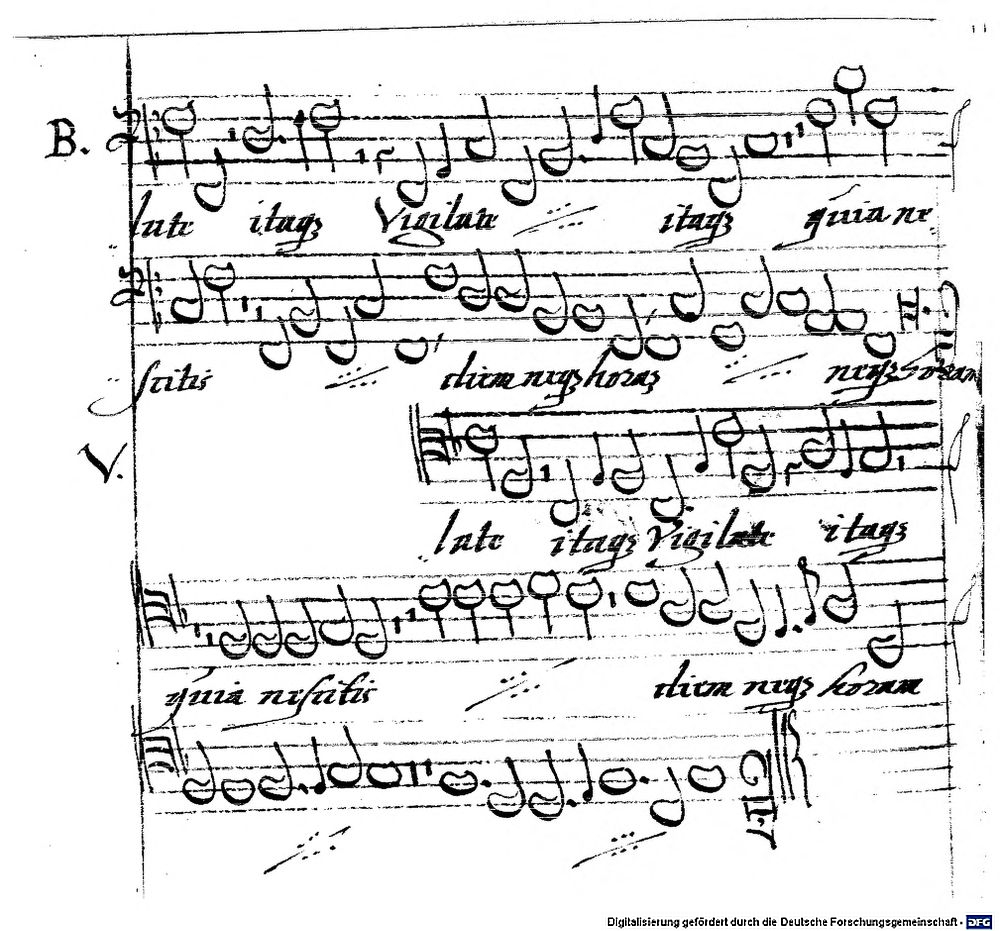 B.
late itaqꝫ Vigilate itaqꝫ quia ne
scitis diem neqꝫ horaꝫ neqꝫ horam
V.
late itaqꝫ Vigilate itaqꝫ
quia nescitis diem neqꝫ horam
Digitalisierung gefördert durch die Deutsche Forschungsgemeinschaft - DFG